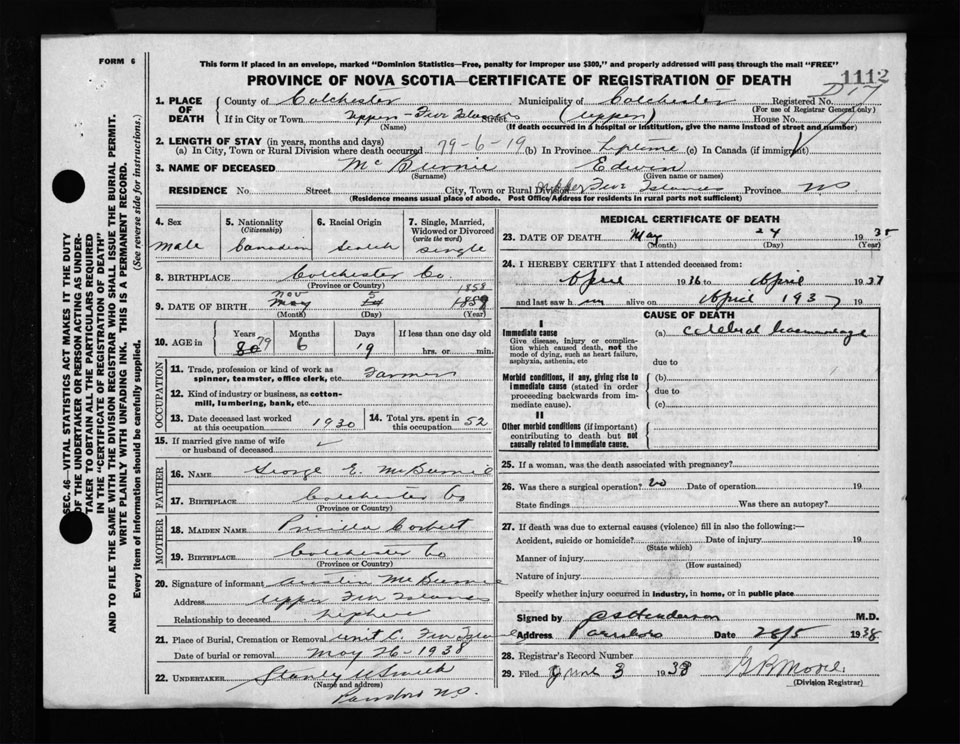 FORM 6
This form if placed in an envelope, marked "Dominion Statistics—Free, penalty for improper use $300," and properly addressed will pass through the mail "FREE"
PROVINCE OF NOVA SCOTIA—CERTIFICATE OF REGISTRATION OF DEATH
1112
1. PLACE OF DEATH
County of Colchester Municipality of Colchester Registered No.
(For use of Registrar General only)
If in City or Town Upper Five Islands Street (Upper) House No.
(Name) (If death occurred in a hospital or institution, give the name instead of street and number)
2. LENGTH OF STAY (in years, months and days)
(a) In City, Town or Rural Division where death occurred 79-6-19 (b) In Province Lifetime (c) In Canada (if immigrant)
3. NAME OF DECEASED McBurnie Edwin
(Surname) (Given name or names)
RESIDENCE No. Street City, Town or Rural Division Upper Five Islands Province NS
(Residence means usual place of abode. Post Office Address for residents in rural parts not sufficient)
4. Sex
Male
5. Nationality
(Citizenship)
Canadian
6. Racial Origin
Scotch
7. Single, Married, Widowed or Divorced
(write the word)
Single
8. BIRTHPLACE Colchester Co.
(Province or County)
9. DATE OF BIRTH Nov May 5 1858 1859
(Month) (Day) (Year)
10. AGE in
Years Months Days If less than one day old
80 79 6 19 hrs. or min.
OCCUPATION
11. Trade, profession or kind of work as spinner, teamster, office clerk, etc. Farmer
12. Kind of industry or business, as cotton-mill, lumbering, bank, etc.
13. Date deceased last worked at this occupation 1930
14. Total yrs. spent in this occupation 52
15. If married give name of wife or husband of deceased
FATHER
16. NAME George E. McBurnie
17. BIRTHPLACE Colchester Co
(Province or County)
MOTHER
18. MAIDEN NAME Pricilla Corbett
19. BIRTHPLACE Colchester Co
(Province or County)
20. Signature of informant Austin McBurnie
Address Upper Five Islands
Relationship to deceased nephew
21. Place of Burial, Cremation or Removal Unit C. Five Islands
Date of burial or removal May 26-1938
22. UNDERTAKER Stanley Smith
(Name and address)
Parrsboro N.S.
MEDICAL CERTIFICATE OF DEATH
23. DATE OF DEATH May 24 1938
(Month) (Day) (Year)
24. I HEREBY CERTIFY that I attended deceased from:
April 1936 to April 1937
and last saw him alive on April 1937 19
CAUSE OF DEATH
I
Immediate cause
Give disease, injury or complication which caused death, not the mode of dying, such as heart failure, asphyxia, asthenia, etc
(a) Cerebral haemorrhage
due to
Morbid conditions, if any, giving rise to immediate cause (stated in order proceeding backwards from immediate cause).
(b)
due to
(c)
II
Other morbid conditions (if important) contributing to death but not causally related to immediate cause.
25. If a woman, was the death associated with pregnancy?
26. Was there a surgical operation? No Date of operation 19
State findings Was there an autopsy?
27. If death was due to external causes (violence) fill in also the following:—
Accident, suicide or homicide? Date of injury 19
(State which)
Manner of injury
(How sustained)
Nature of injury
Specify whether injury occurred in industry, in home, or in public place
Signed by Henderson M.D.
Address Parrsboro Date 26/5 1938
28. Registrar's Record Number
29. Filed June 3 1938
(Division Registrar)
SEC. 46—VITAL STATISTICS ACT MAKES IT THE DUTY
OF THE UNDERTAKER OR PERSON ACTING AS UNDER-
TAKER TO OBTAIN ALL THE PARTICULARS REQUIRED
IN THE "CERTIFICATE OF REGISTRATION OF DEATH"
AND TO FILE THE SAME WITH THE DIVISION REGISTRAR WHO SHALL ISSUE THE BURIAL PERMIT.
WRITE PLAINLY WITH UNFADING INK. THIS IS A PERMANENT RECORD.
Every item of information should be carefully supplied. (See reverse side for instructions.)